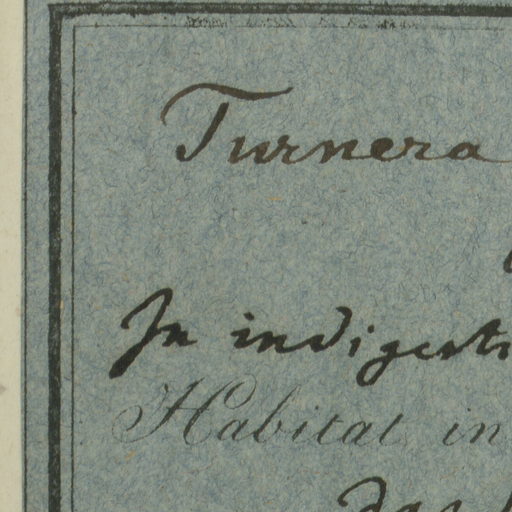 Turnera
In indigesti
Habitat in